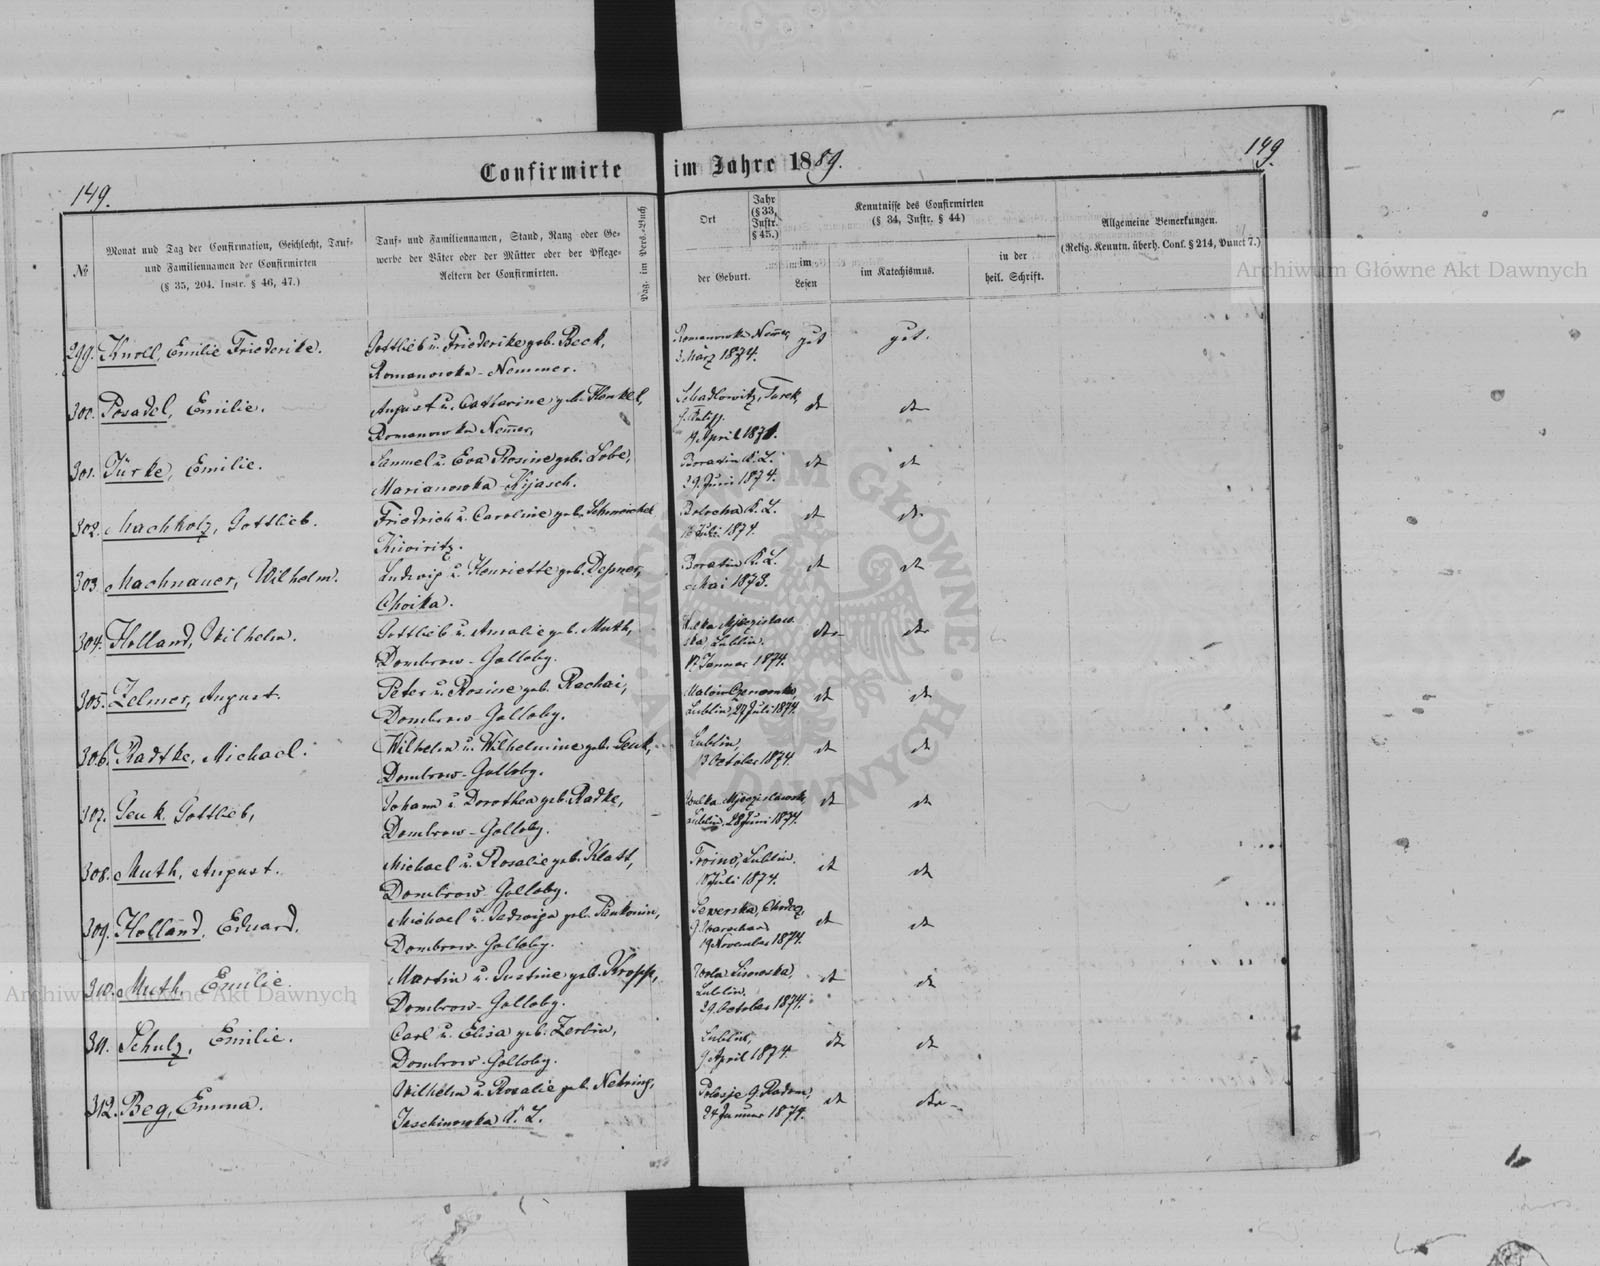 Confirmirte im Jahre 1889.
149.
149.
№
Monat und Tag der Confirmation, Geschlecht, Tauf-
und Familiennamen der Confirmirten
(§ 35, 204. Instr. § 46, 47.)
Tauf- und Familiennamen, Stand, Rang oder Ge-
werbe der Väter oder der Mütter oder der Pflege-
Aeltern der Confirmirten.
Pag. im Pers.-Buch
Ort
Jahr
(§ 33,
Instr.
§ 45.)
der Geburt.
Kenntnisse des Confirmirten
(§ 34, Instr. § 44)
im
Lesen
im Katechismus.
in der
heil. Schrift.
Allgemeine Bemerkungen.
(Relig. Kenntn. überh. Conf. § 214, Punct 7.)
299. Knoll, Emilie Friederike.
Gottlieb u. Friederike geb. Beck,
Romanowka-Nemmer.
Romanowka Nemer,
3. März 1874.
gut
gut.
300. Posadel, Emilie.
August u. Catharine geb. Henkel,
Romanowka Nemer,
Turek,
19 April 1871.
dt
dt
301. Türke, Emilie.
Samuel u. Eva Rosine geb. Lobe,
Marianowka-Kijasch.
Boratin K. L.
29. Juni 1874.
dt
dt
302. Machholz, Gottlieb.
Friedrich u. Caroline geb.
Kiwiritz.
K. L.
Juli 1874.
dt
dt
303. Machnauer, Wilhelm.
Ludwig u. Henriette geb. Depner,
Choika.
Boratin K. L.
Mai 1873.
dt
dt
304. Holland, Wilhelm.
Gottlieb u. Amalie geb. Muth,
Dombrow-Golloby.
Lublin.
17. Januar 1874.
dt
dt
305. Zelmer, August.
Peter u. Rosine geb. Rachai,
Dombrow-Golloby.
Lublin, 27 Juli 1874.
dt
dt
306. Radtke, Michael.
Wilhelm u. Wilhelmine geb. Genk,
Dombrow-Golloby.
Lublin,
13 October 1874.
dt
dt
307. Genk, Gottlieb,
Johann u. Dorothea geb. Radke,
Dombrow-Golloby.
Wulka
Lublin, 28 Juni 1874.
dt
dt
308. Muth, August.
Michael u. Rosalie geb. Klatt,
Dombrow-Golloby.
Lublin.
10 Juli 1874.
dt
dt
309. Holland, Eduard.
Michael u. Jadwiga geb. Pankonin,
Dombrow-Golloby.
Sewerska, Chodez,
G. Warschau
19 November 1874.
dt
dt
310. Muth, Emilie.
Martin u. Justine geb. Kropp,
Dombrow-Golloby.
Wola
Lublin.
29. October 1874.
dt
dt
311. Schulz, Emilie.
Carl u. Elisa geb. Zerbin,
Dombrow-Golloby.
Lublin,
9. April 1874.
dt
dt
312. Beg, Emma.
Wilhelm u. Rosalie geb. Nehring,
Jaschinowka K. L.
Polesje G. Radom,
24 Januar 1874.
dt
dt
Archiwum Główne Akt Dawnych
Archiwum Główne Akt Dawnych
ARCHIWUM GŁÓWNE AKT DAWNYCH